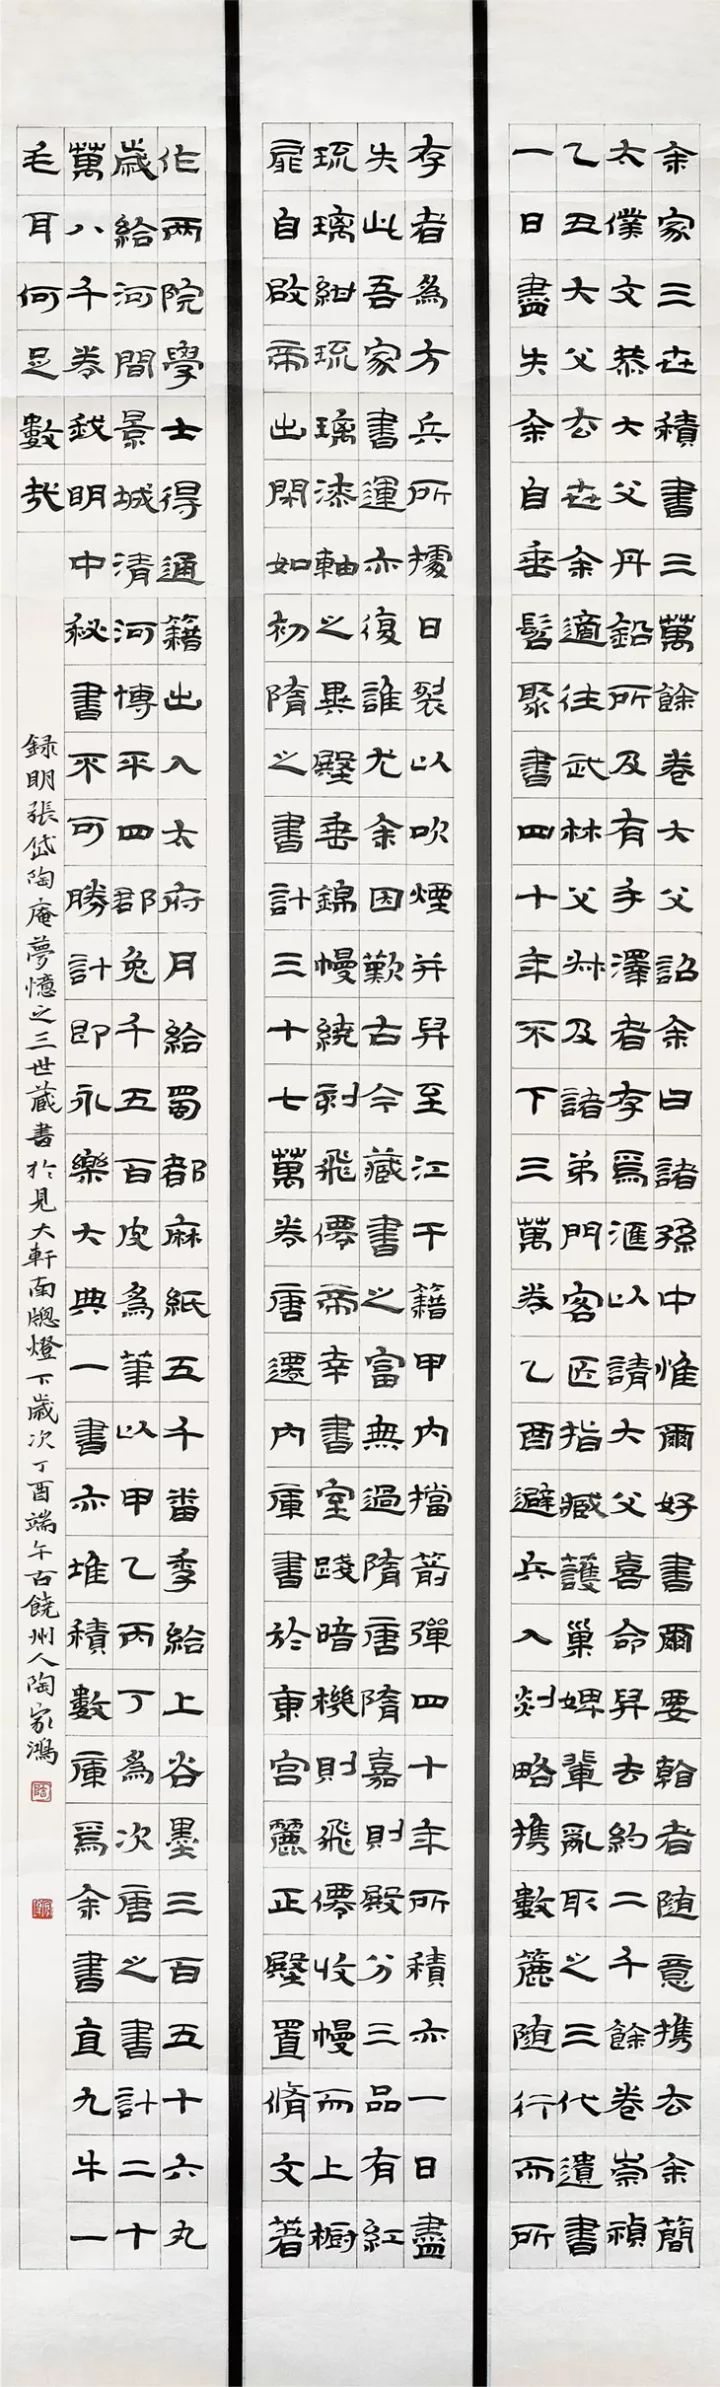 余家三世積書三萬餘卷大父詔余曰諸孫中惟爾好書爾要翰者随意攜去余簡
太僕文恭大父丹鉛所及有手澤者存焉滙以請大父喜命舁去約二千餘卷崇禎
乙丑大父去世余適往武林父叔及諸弟門客匠指臧護巢婢輩亂取之三代遺書
一日盡失余自垂髫聚書四十年不下三萬卷乙酉避兵入剡略攜數簏随行而所
存者為方兵所據日裂以吹煙并舁至江干籍甲内擋箭彈四十年所積亦一日盡
失此吾家書運亦復誰尤余因歎古今藏書之富無過隋唐隋嘉則殿分三品有紅
琉璃紺琉璃漆軸之異殿垂錦幔繞刻飛僊帝幸書室踐暗機則飛僊收幔而上橱
扉自啟帝出閉如初隋之書計三十七萬卷唐遷内庫書於東宮麗正殿置脩文著
作兩院學士得通籍出入太府月給蜀都麻紙五千番季給上谷墨三百五十六丸
歲給河間景城清河博平四郡兔千五百皮為筆以甲乙丙丁為次唐之書計二十
萬八千卷我明中秘書不可勝計即永樂大典一書亦堆積數庫焉余書直九牛一
毛耳何足數哉
録明張岱陶庵夢憶之三世藏書於見大軒南牕燈下歲次丁酉端午古饒州人陶家鴻